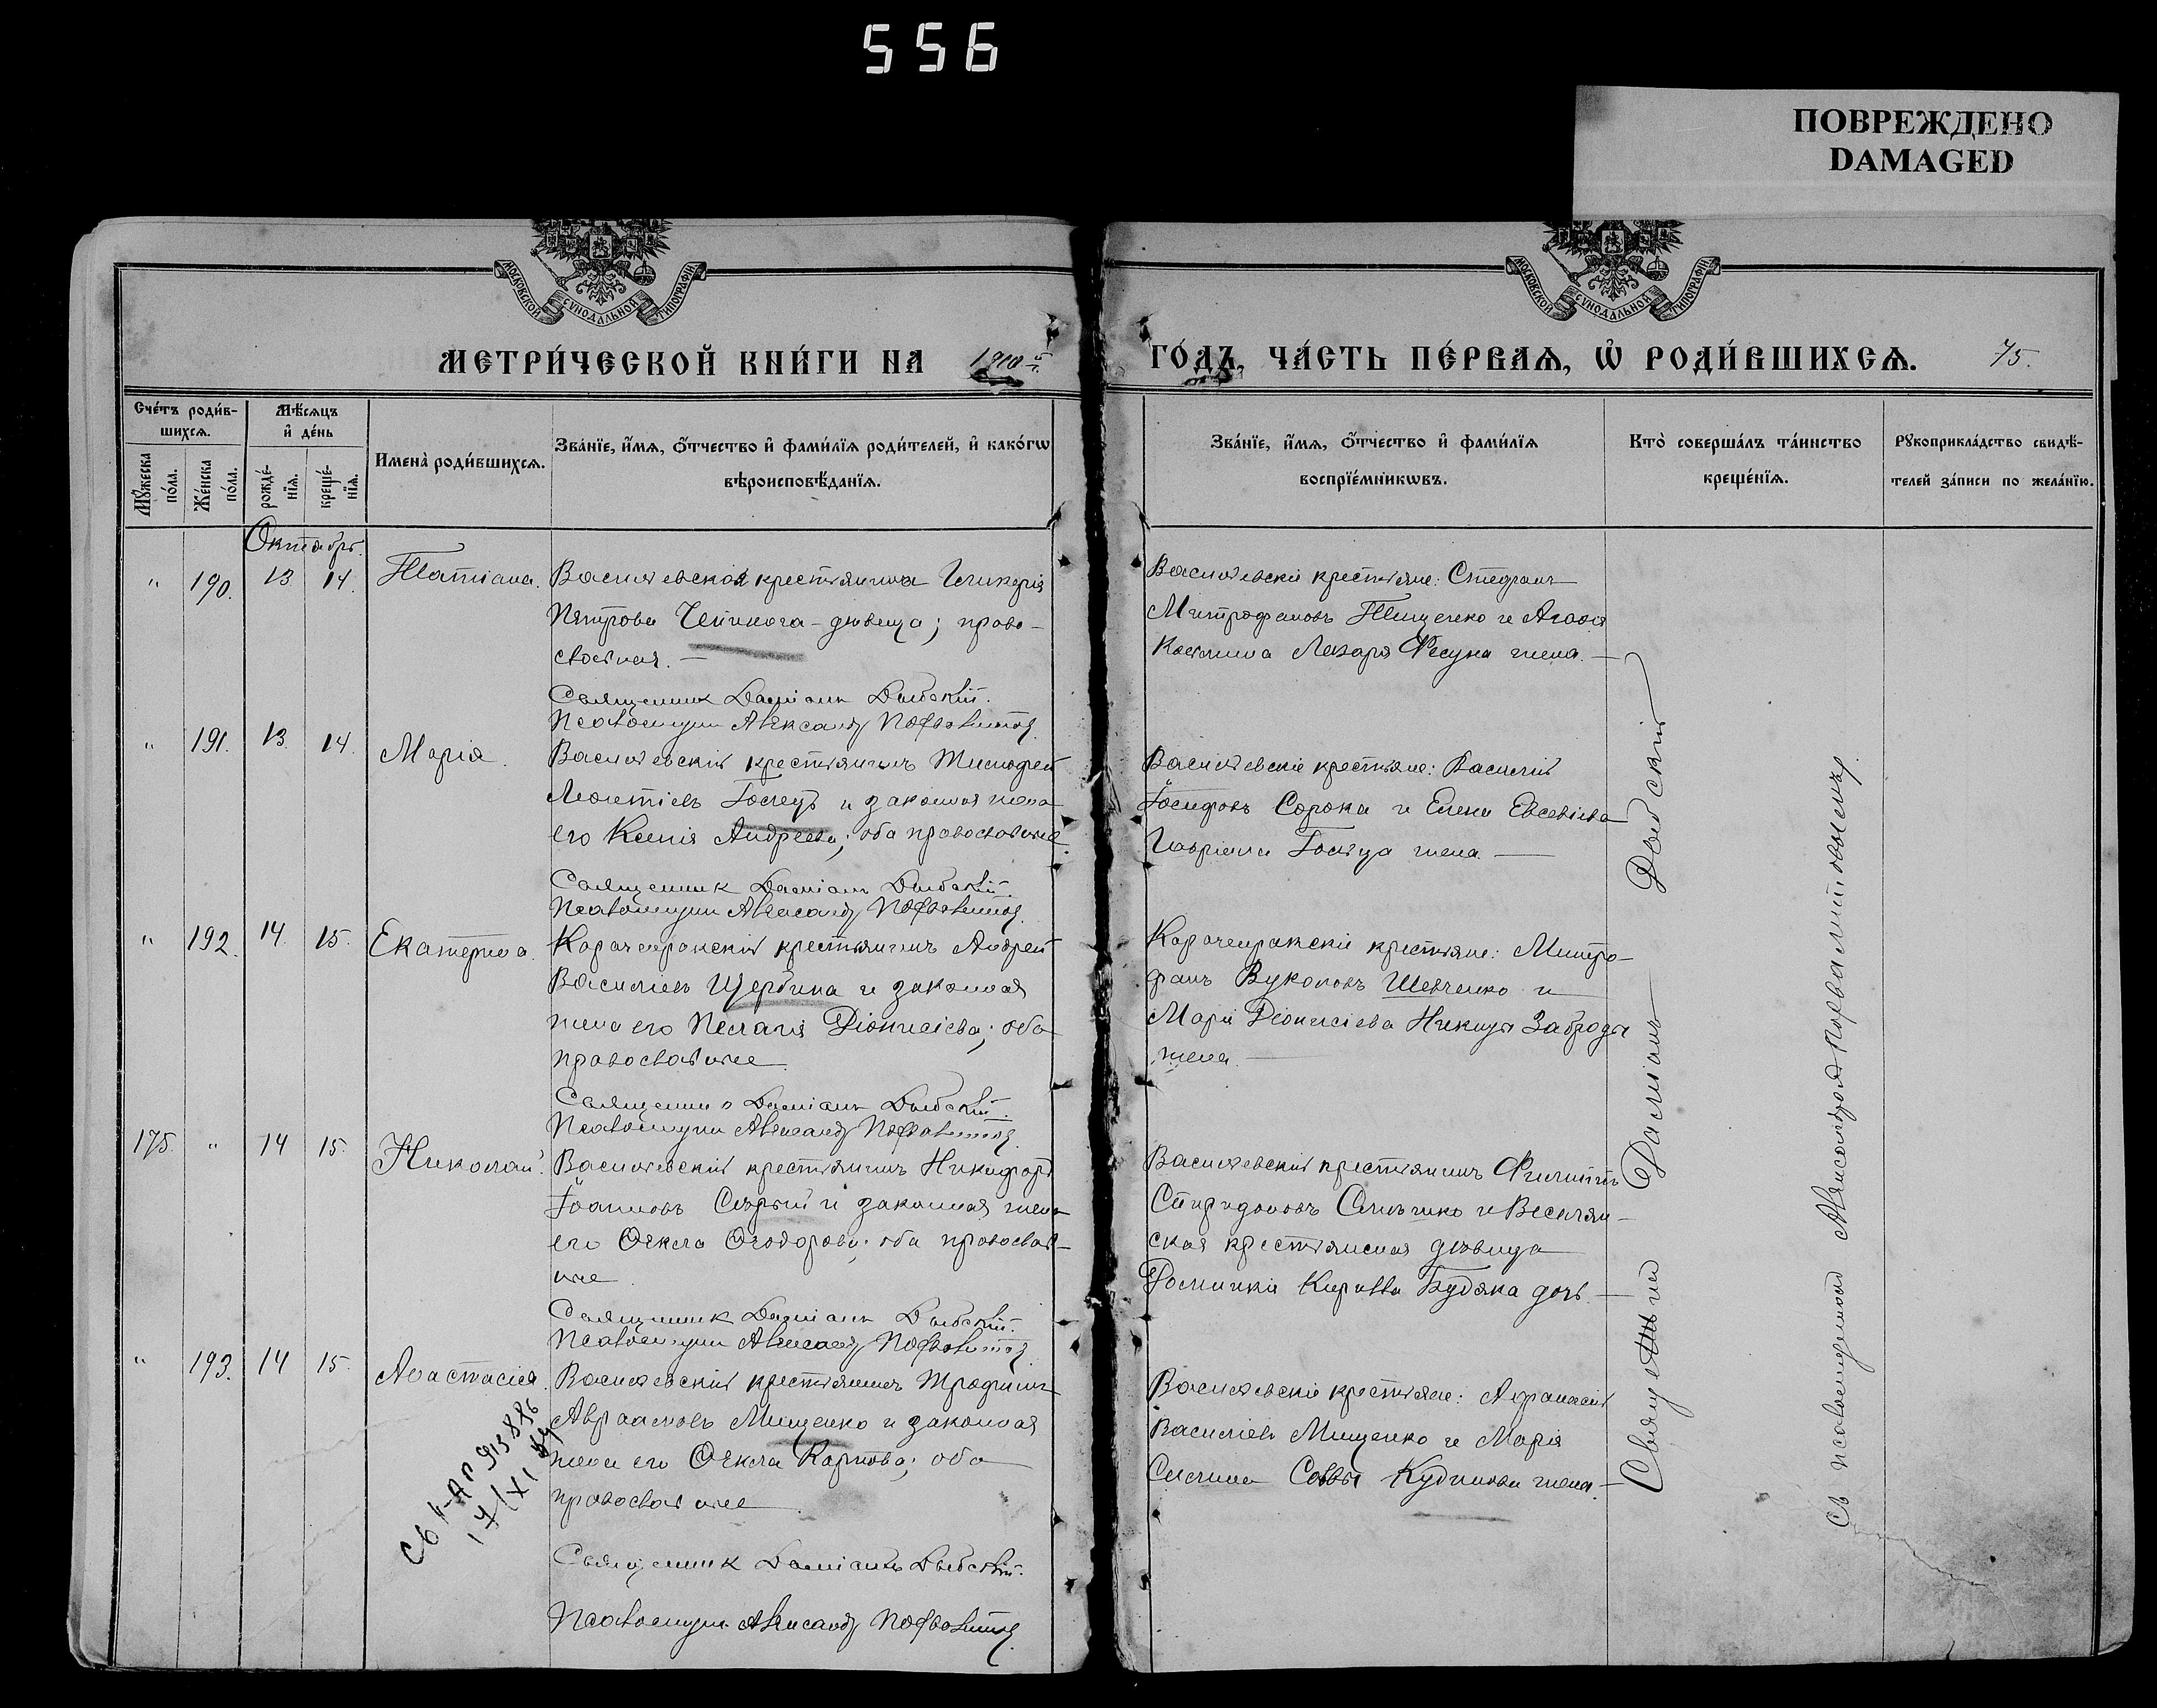 556
ПОВРЕЖДЕНО
DAMAGED
МОСКОВСКОЙ СѴНОДАЛЬНОЙ ТИПОГРАФІИ
МОСКОВСКОЙ СѴНОДАЛЬНОЙ ТИПОГРАФІИ
МЕТРИ́ЧЕСКОЙ КНИ́ГИ НА 1910-й ГО́ДЪ, ЧА́СТЬ ПЕ́РВАѦ, Ѡ҆ РОДИ́ВШИХСѦ. 75.
Сче́тъ роди́в-
шихсѧ.
Мꙋ́жеска по́ла.
Же́нска по́ла.
Мѣ́сѧцъ
и҆ де́нь
рожде́-
нїѧ.
креще́-
нїѧ.
Имена̀ роди́вшихсѧ.
Зва́нїе, и҆́мѧ, ѻ҆́тчество и҆ фами́лїѧ роди́телей, и҆ како́гѡ
вѣроисповѣ́данїѧ.
Зва́нїе, и҆́мѧ, ѻ҆́тчество и҆ фами́лїѧ
воспрїе́мникѡвъ.
Кто̀ соверша́лъ та́инство
креще́нїѧ.
Рꙋкоприкла́дство свидѣ́-
телей за́писи по жела́нїю.
Октябрь.
" 190. 13 14. Татіана.
Васильевская крестьянка Гликерія
Петрова девица; право-
славная. —
Священник Даміанъ
Псаломщик Александр
Васильевскіе крестьяне: Стефанъ
Митрофановъ Тищенко и Агафія
Косьмина Лазаря Фесуна жена. —
" 191. 13. 14. Марія.
Васильевскій крестьянинъ Тимофей
Леонтіевъ и законная жена
его Ксенія Андреева; оба православные.
Священник Даміанъ
Псаломщик Александр
Васильевскіе крестьяне: Василій
Іосифовъ Сорока и Елена Евсевіева
Гавріила жена. —
" 192. 14. 15. Екатерина.
Карачекракскій крестьянинъ Андрей
Василіевъ Щербина и законная
жена его Пелагія Діонисіева; оба
православные.
Священник Даміанъ
Псаломщик Александр
Карачекракскіе крестьяне: Митро-
фанъ Вуколовъ Шевченко и
Марія Діонисіева Никиты Заброды
жена. —
175. " 14 15. Николай.
Васильевскій крестьянинъ Никифоръ
Іоанновъ Сѣрый и законная жена
его Ѳекла Ѳеодорова; оба православ-
ные
Священник Даміанъ
Псаломщик Александр
Васильевскій крестьянинъ Филиппъ
Спиридоновъ и
ская крестьянская дѣвица
Домникія Кирилла Будяка дочь. —
" 193. 14 15. Анастасія.
Васильевскій крестьянинъ Трофимъ
Авраамовъ Мищенко и законная
жена его Ѳекла Карпова; оба
православные
Священник Даміанъ
Псаломщик Александр
Васильевскіе крестьяне: Афанасій
Василіевъ Мищенко и Марія
Саввы жена. —
Св II-АР 913886
Священник Даміанъ
Съ псаломщикомъ Александромъ